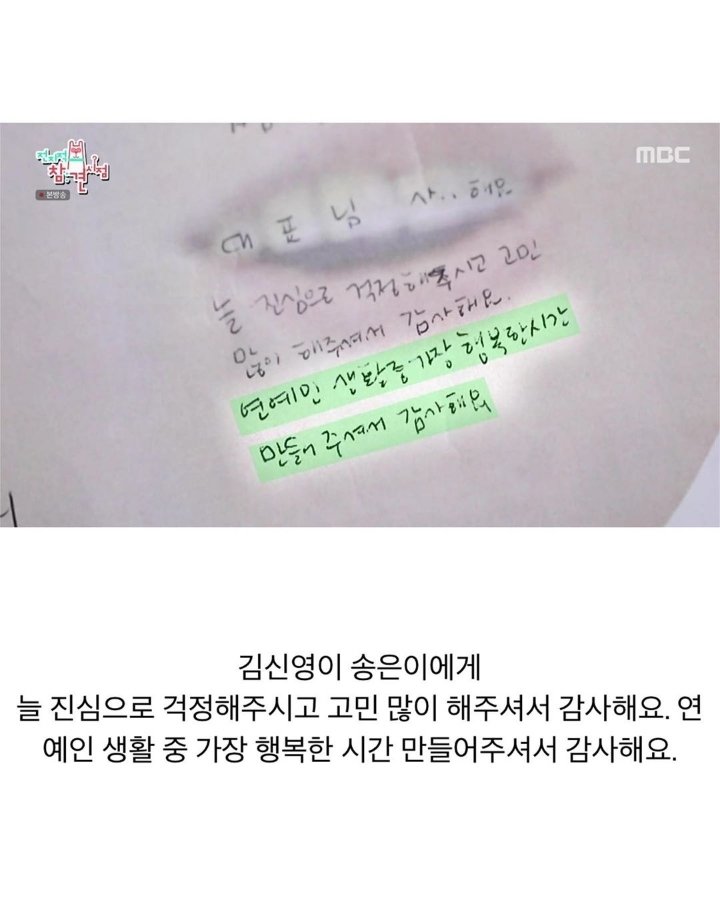 전지적
참견시점
본방송
MBC
대표님 사..해요
늘 진심으로 걱정해주시고 고민
많이 해주셔서 감사해요.
연예인 생활중 가장 행복한시간
만들어 주셔서 감사해요
김신영이 송은이에게
늘 진심으로 걱정해주시고 고민 많이 해주셔서 감사해요. 연
예인 생활 중 가장 행복한 시간 만들어주셔서 감사해요.